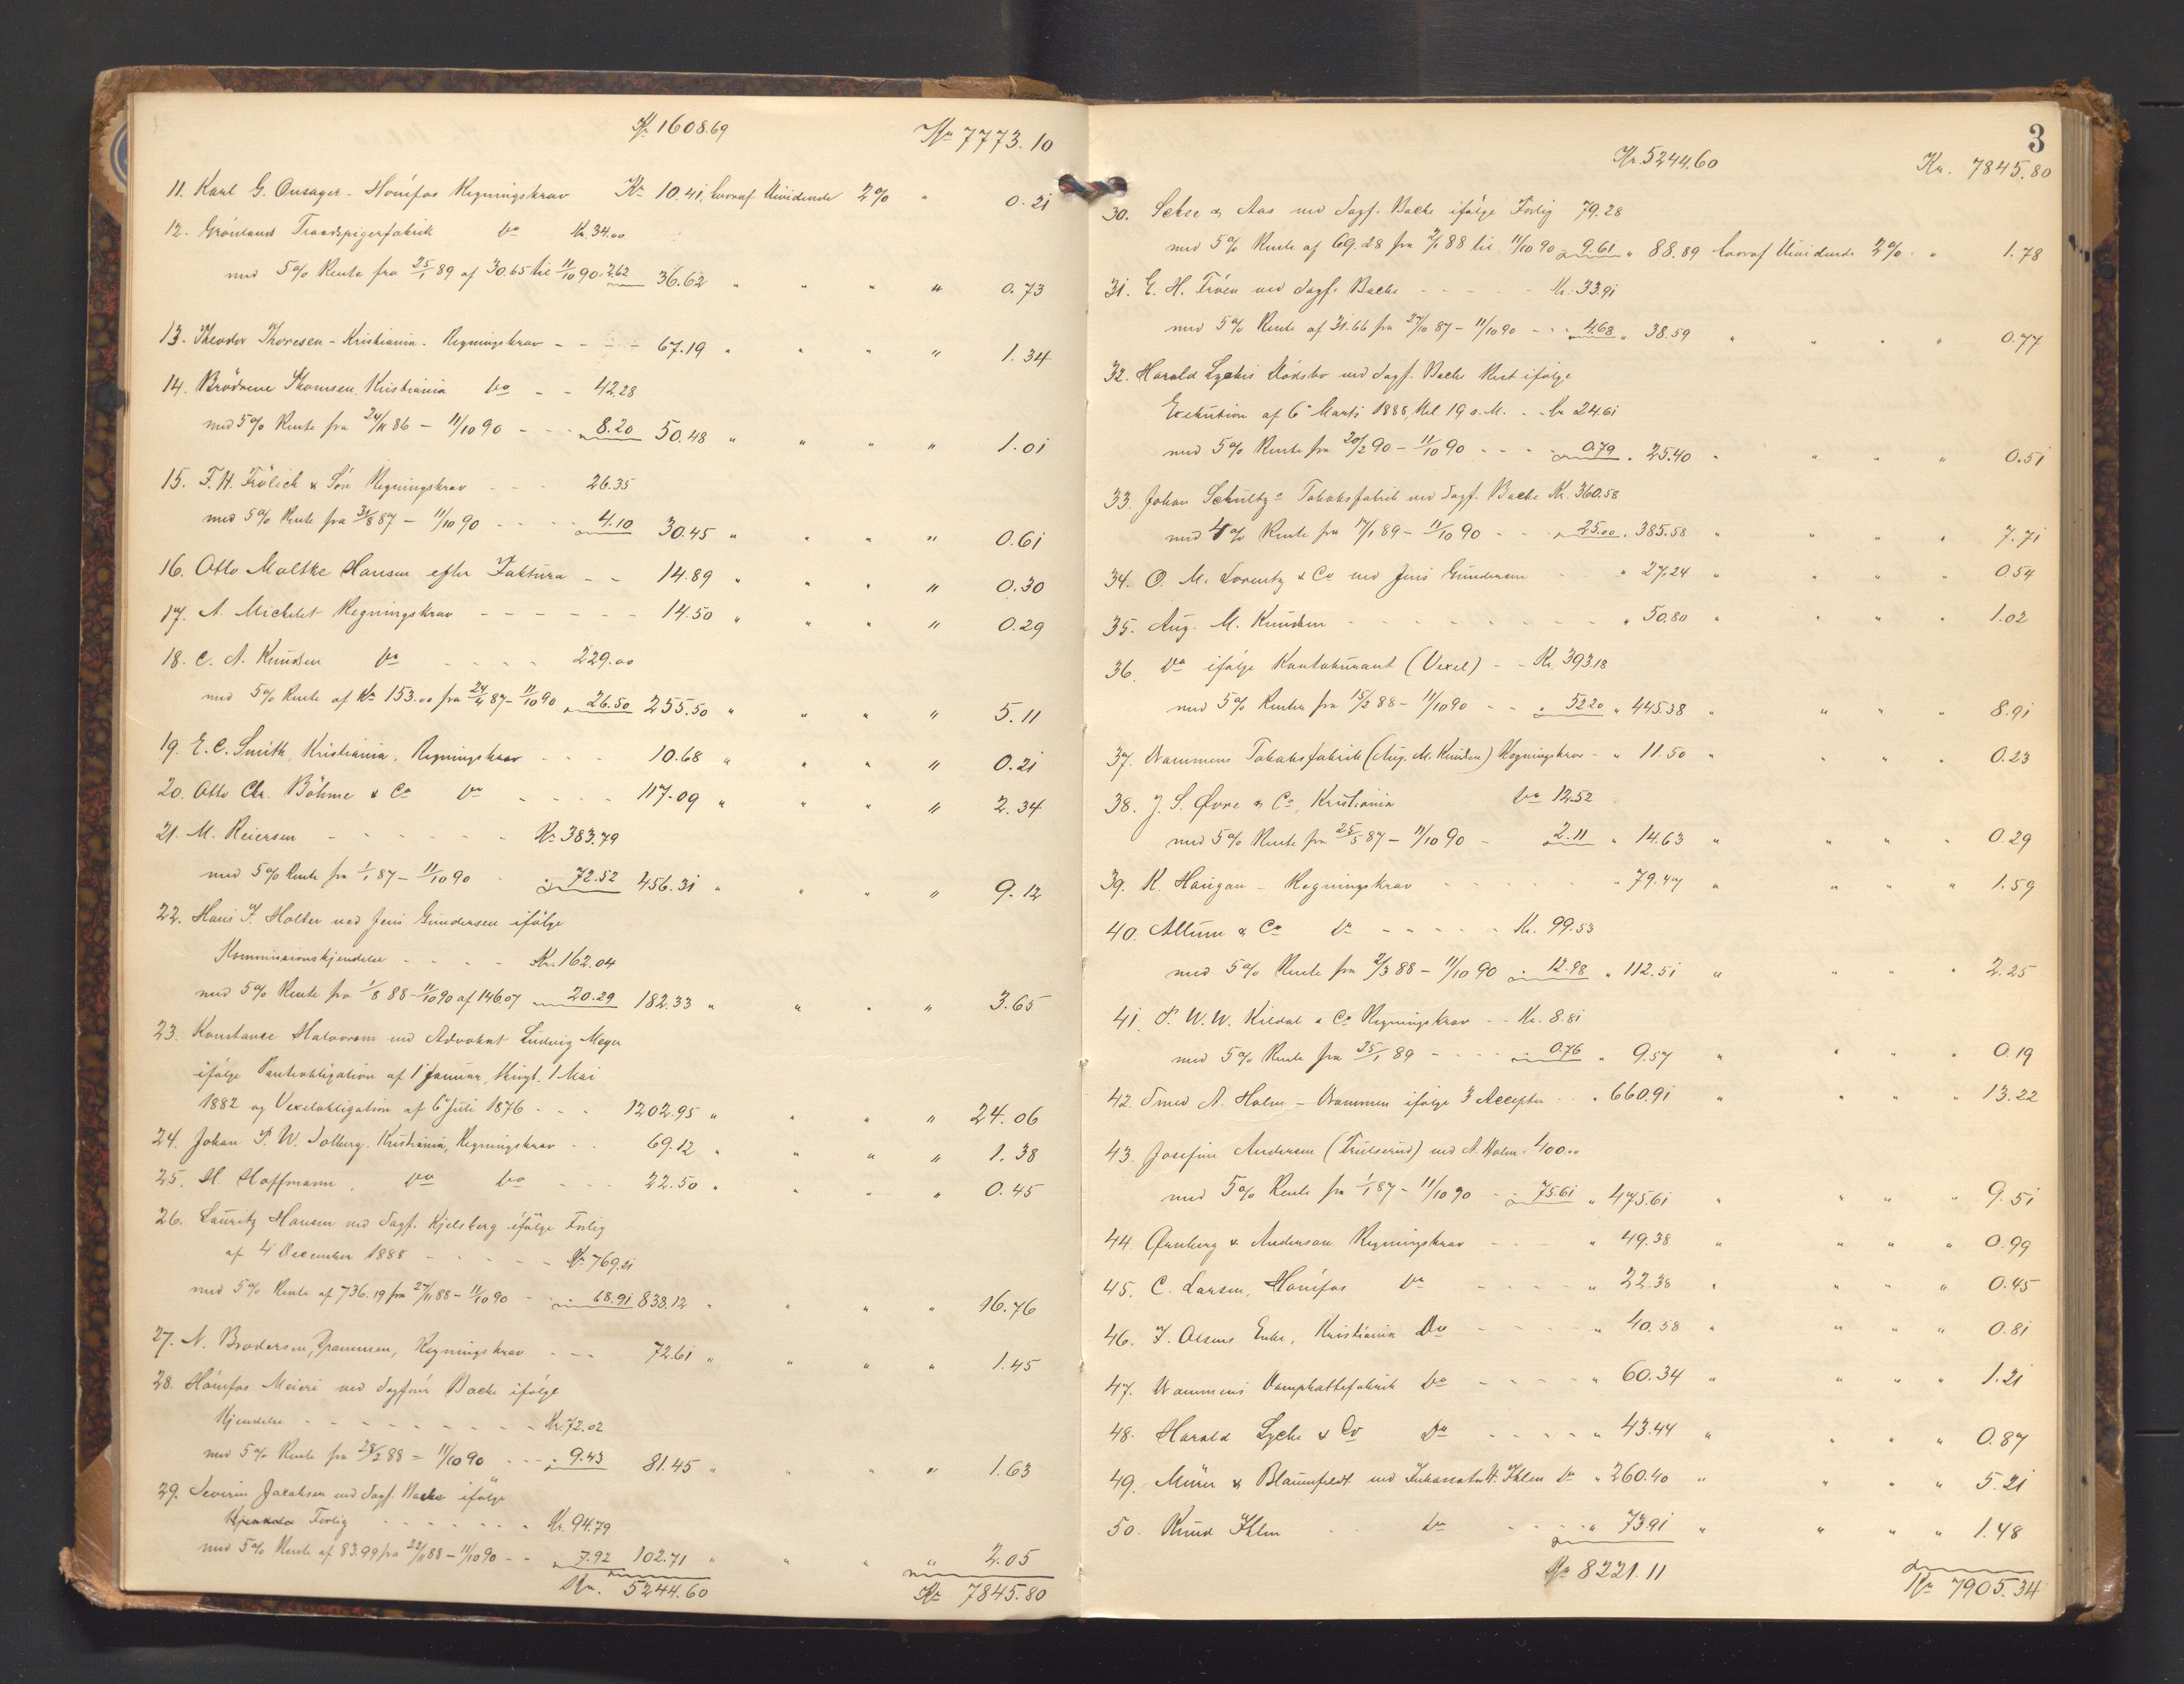 Kr. 1608.69 Kr. 7773.10
11. Karl G. Onsager - Hönefos Regningskrav Kr. 10.41, hvoraf Dividende 2% " 0.21
12. Grönlands Traadspigerfabrik Do Kr. 34.00
med 5% Rente fra 25/1 89 af 30.65 til 11/10 90 - 2.62 36.62 " " " " 0.73
13. Theodor Thoresen - Kristiania - Regningskrav - - - - 67.19 " " " " 1.34
14. Brödrene Thomsen, Kristiania Do - - 42.28
med 5% Rente fra 24/11 86 - 11/10 90 - - - 8.20 50.48 " " " " 1.01
15. F. H. Frölich & Sön Regningskrav - - - 26.35
med 5% Rente fra 31/8 87 - 11/10 90 - - - 4.10 30.45 " " " " 0.61
16. Otto Moltke Hansen efter Faktura - - 14.89 " " " " 0.30
17. A. Michelet Regningskrav - - - - - - 14.50 " " " " 0.29
18. C. A. Knudsen Do - - - - 229.00
med 5% Rente af Kr. 153.00 fra 24/4 87 - 11/10 90 " 26.50 255.50 " " " " 5.11
19. E. C. Smith, Kristiania, Regningskrav - - - 10.68 " " " " 0.21
20. Otto Chr. Böhme & Co Do - - - - 117.09 " " " " 2.34
21. M. Reiersen - - - - - - Kr. 383.79
med 5% Rente fra 1/1 87 - 11/10 90 - " 72.52 456.31 " " " " 9.12
22. Hans F. Holter ved Jens Gundersen ifölge
Kommissionskjendelse - - - - Kr. 162.04
med 5% Rente fra 1/8 88 - 11/10 90 af 146.07 " 20.29 182.33 " " " " 3.65
23. Konstance Halvorsen ved Advokat Ludvig Meyer
ifölge Panteobligation af 1 Januar, thingl. 1 Mai
1882 og Vexelobligation af 6 Juli 1876 - - - 1202.95 " " " " 24.06
24. Johan P. W. Solberg, Kristiania, Regningskrav - - 69.12 " " " " 1.38
25. H. Hoffmann, Do Do - - - 22.50 " " " " 0.45
26. Lauritz Hansen ved Sagf. Kjelsberg ifölge Forlig
af 4 December 1888 - - - - - Kr. 769.21
med 5% Rente af 736.19 fra 27/11 88 - 11/10 90 - " 68.91 838.12 " " " " 16.76
27. N. Brodersen, Drammen, Regningskrav - - - 72.61 " " " " 1.45
28. Hönefos Meieri ved Sagförer Bache ifölge
Kjendelse - - - - - - - - - Kr. 72.02
med 5% Rente fra 28/2 88 - 11/10 90 - - - " 9.43 81.45 " " " " 1.63
29. Severin Jacobsen ved Sagf. Bache ifölge
Kjendelse Forlig - - - - - - - Kr. 94.79
med 5% Rente af 83.99 fra 22/11 88 - 11/10 90 - - " 7.92 102.71 " " " " 2.05
Kr. 5244.60 Kr. 7845.80
3
Kr. 5244.60 Kr. 7845.80
30. Sehse & Aas ved Sagf. Bache ifölge Forlig 79.28
med 5% Rente af 69.28 fra 2/1 88 til 11/10 90 " 9.61 " 88.89 hvoraf Dividende 2% " 1.78
31. E. H. Tröen ved Sagf. Bache - - - - - Kr. 33.91
med 5% Rente af 31.66 fra 27/10 87 - 11/10 90 - - - 4.68 " 38.59 " " " " 0.77
32. Harald Lyches Dödsbo ved Sagf. Bache Rest ifölge
Exekution af 6 Marts 1888, Kl. 19 s. M. - - Kr. 24.61
med 5% Rente fra 20/2 90 - 11/10 90 - - - " 0.79 " 25.40 " " " " 0.51
33. Johan Schultz's Tobaksfabrik ved Sagf. Bache Kr. 360.58
med 4% Rente fra 7/1 89 - 11/10 90 - - " 25.00 " 385.58 " " " " 7.71
34. O. M. Lorentz & Co ved Jens Gundersen - - " 27.24 " " " " 0.54
35. Aug. M. Knudsen - - - - - - - - - " 50.80 " " " " 1.02
36. Do ifölge Kontokurant (Vexel) - - Kr. 393.18
med 5% Renter fra 15/2 88 - 11/10 90 - - " 52.20 " 445.38 " " " " 8.91
37. Drammens Tobaksfabrik (Aug. M. Knudsen) Regningskrav - " 11.50 " " " " 0.23
38. J. S. Øvre & Co, Kristiania Do 12.52
med 5% Rente fra 25/5 87 - 11/10 90 - 2.11 " 14.63 " " " " 0.29
39. K. Haugan - Regningskrav - - - - - - " 79.47 " " " " 1.59
40. Allum & Co Do - - - - - Kr. 99.53
med 5% Rente fra 2/3 88 - 11/10 90 " 12.98 " 112.51 " " " " 2.25
41. P. W. W. Kildal & Co Regningskrav - - Kr. 8.81
med 5% Rente fra 25/1 89 - - - - " 0.76 " 9.57 " " " " 0.19
42. Smed A. Holm - Drammen ifölge 3 Accepter - - " 660.91 " " " " 13.22
43. Josefine Andersen (Trulserud) ved A. Holm - 400.00
med 5% Rente fra 1/1 87 - 11/10 90 - " 75.61 " 475.61 " " " " 9.51
44. Ørnberg & Anderson Regningskrav - - - " 49.38 " " " " 0.99
45. C. Larsen, Hönefos Do - - - - " 22.38 " " " " 0.45
46. F. Olsens Enke, Kristiania Do - - - - " 40.58 " " " " 0.81
47. Drammens Damphattefabrik Do - - - - " 60.34 " " " " 1.21
48. Harald Lyche & Co Do - - - - " 43.44 " " " " 0.87
49. Mürer & Blaunfeldt ved Inkassator H. Ihlen Do " 260.40 " " " " 5.21
50. Knud Ihlen - - Do - - - " 73.91 " " " " 1.48
Kr. 8221.11 Kr. 7905.34